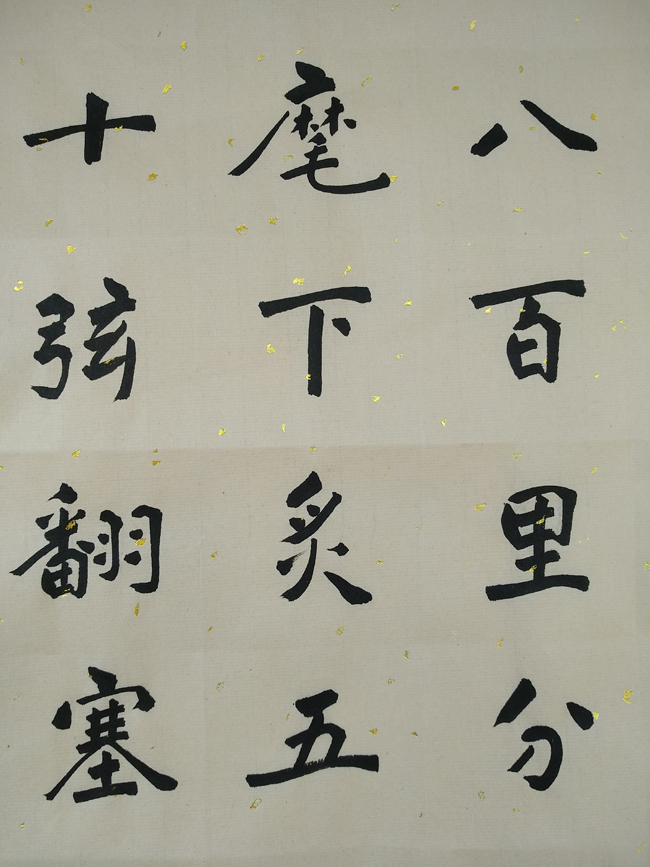 八百里分
麾下炙五
十弦翻塞